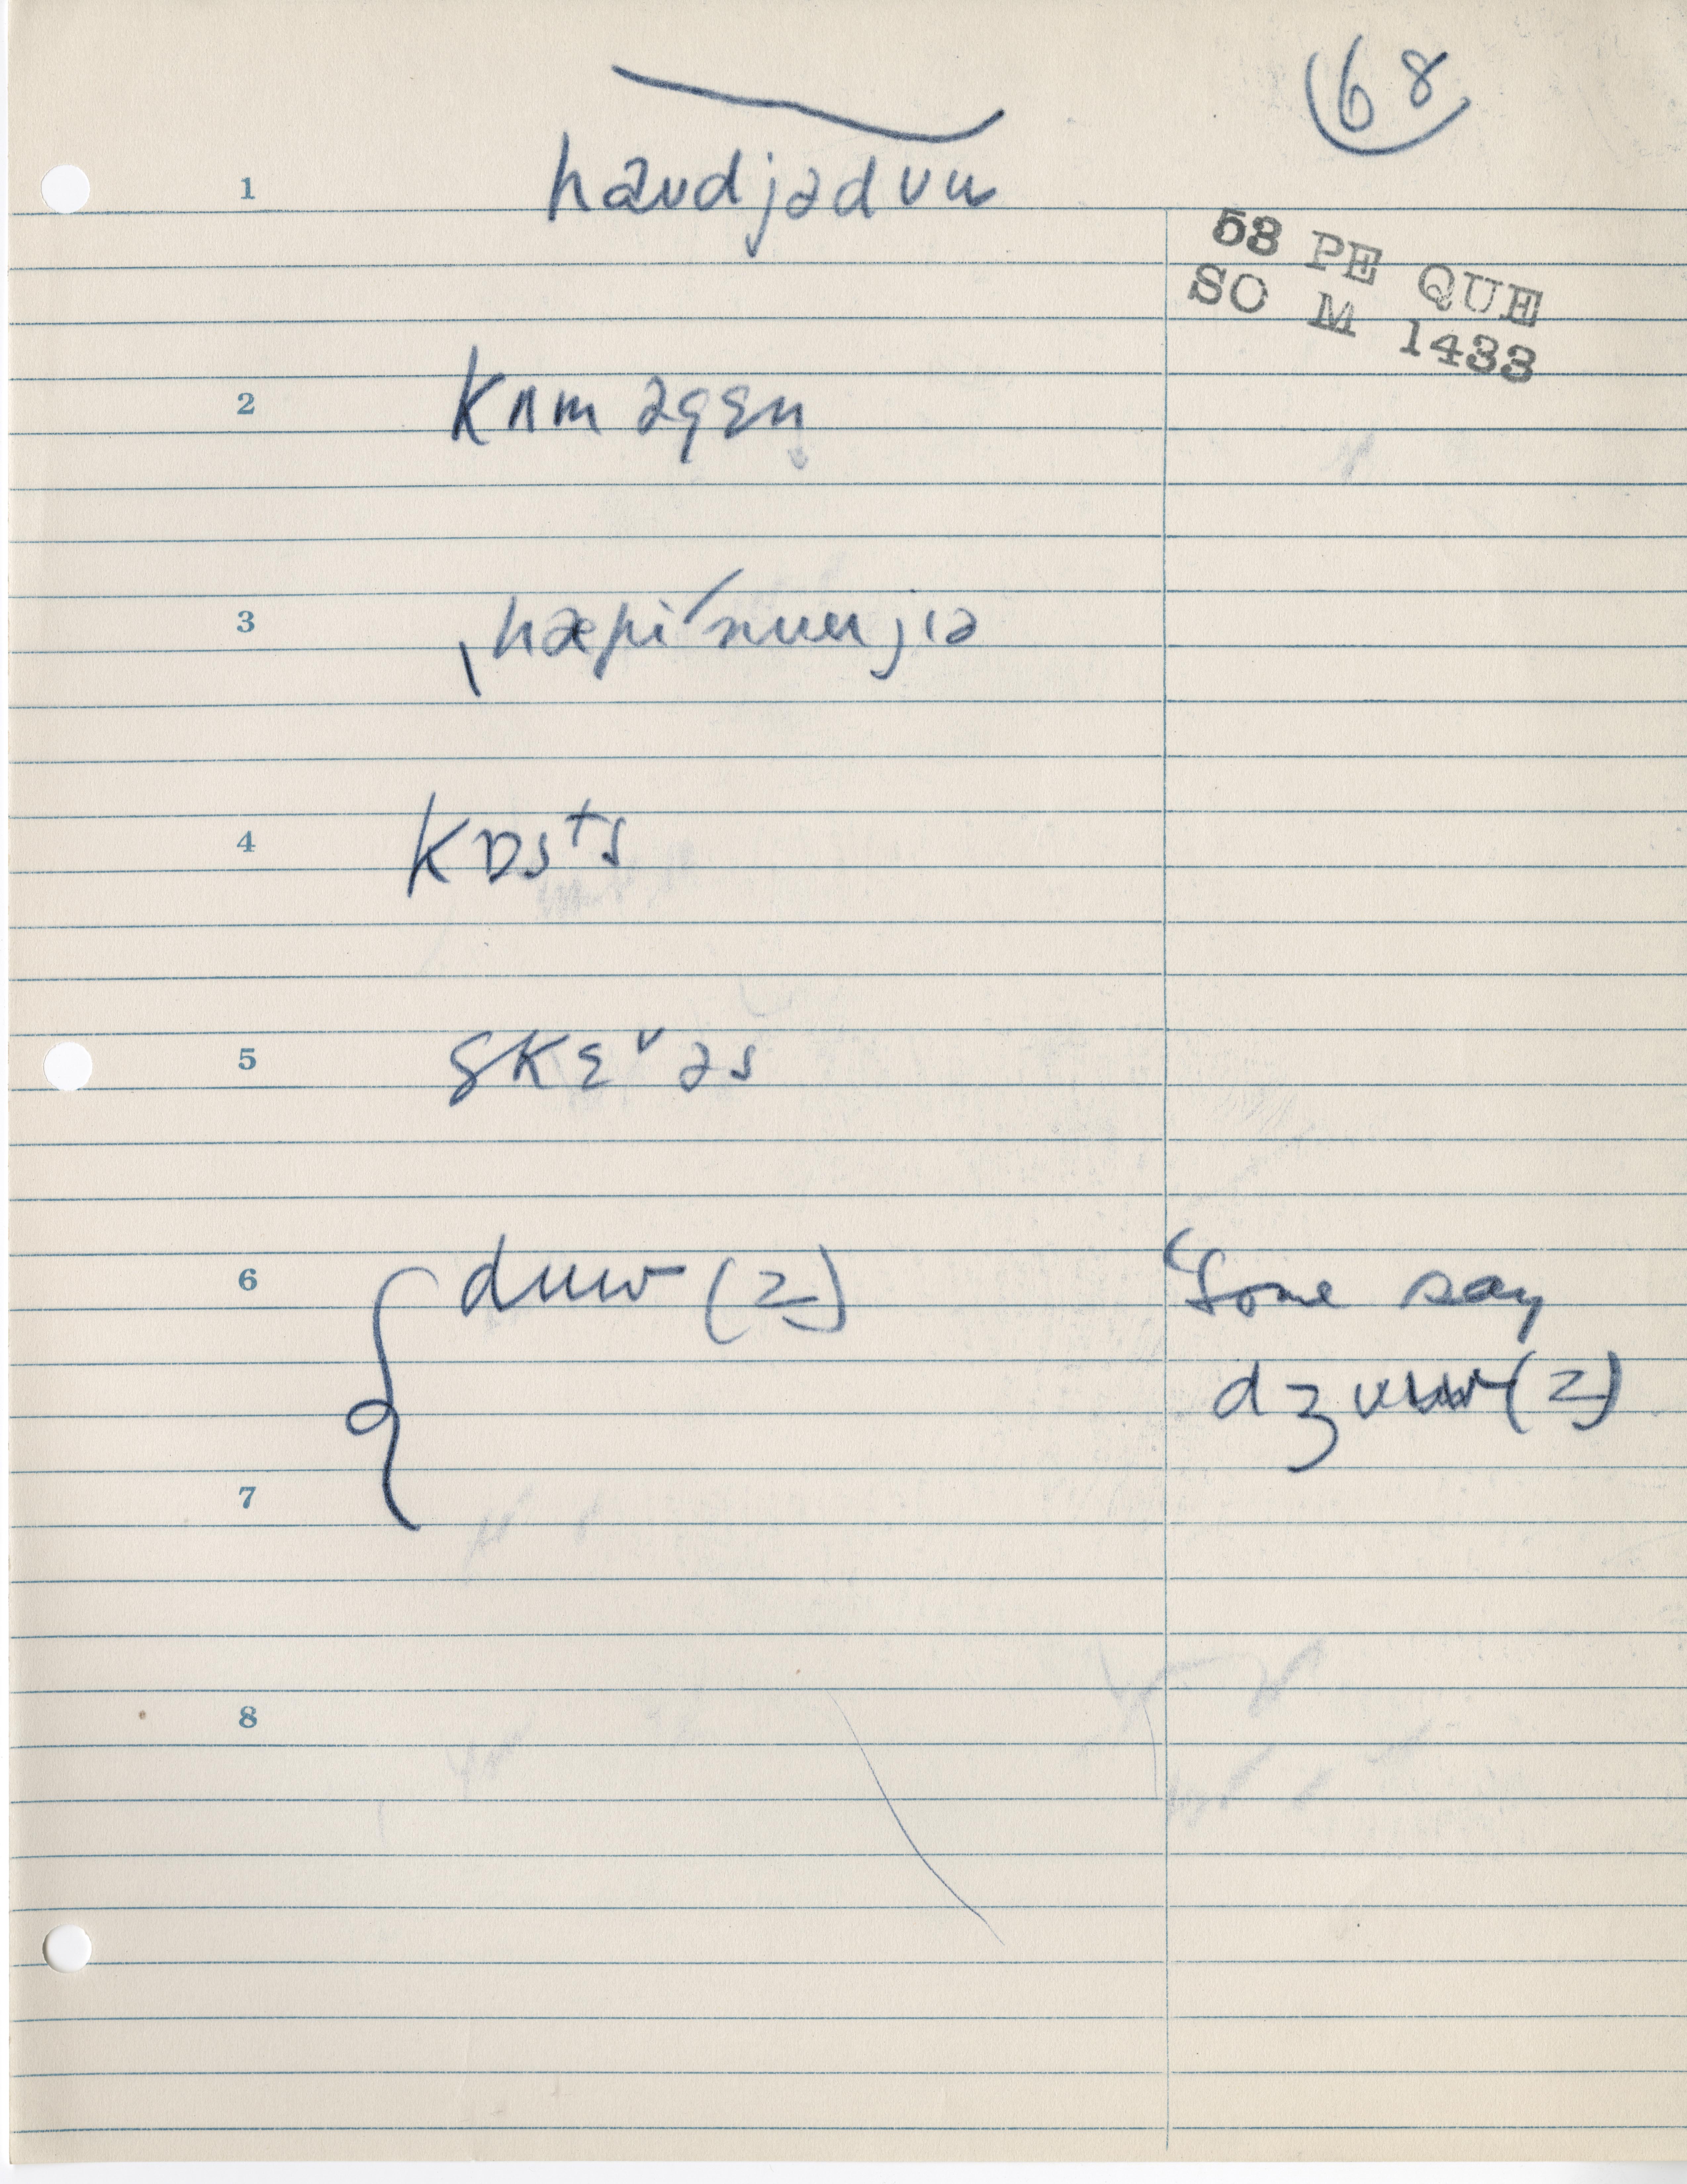 68
1 haʊdjədʊu
53 PE QUE
SO M 1433
2 kʌm əgɛn
3 ˌhæpiˊnuujiə
4 kɒsts
5 skɛʊəs
6 duw(z) "Some say
dʒuw(z)
7
8